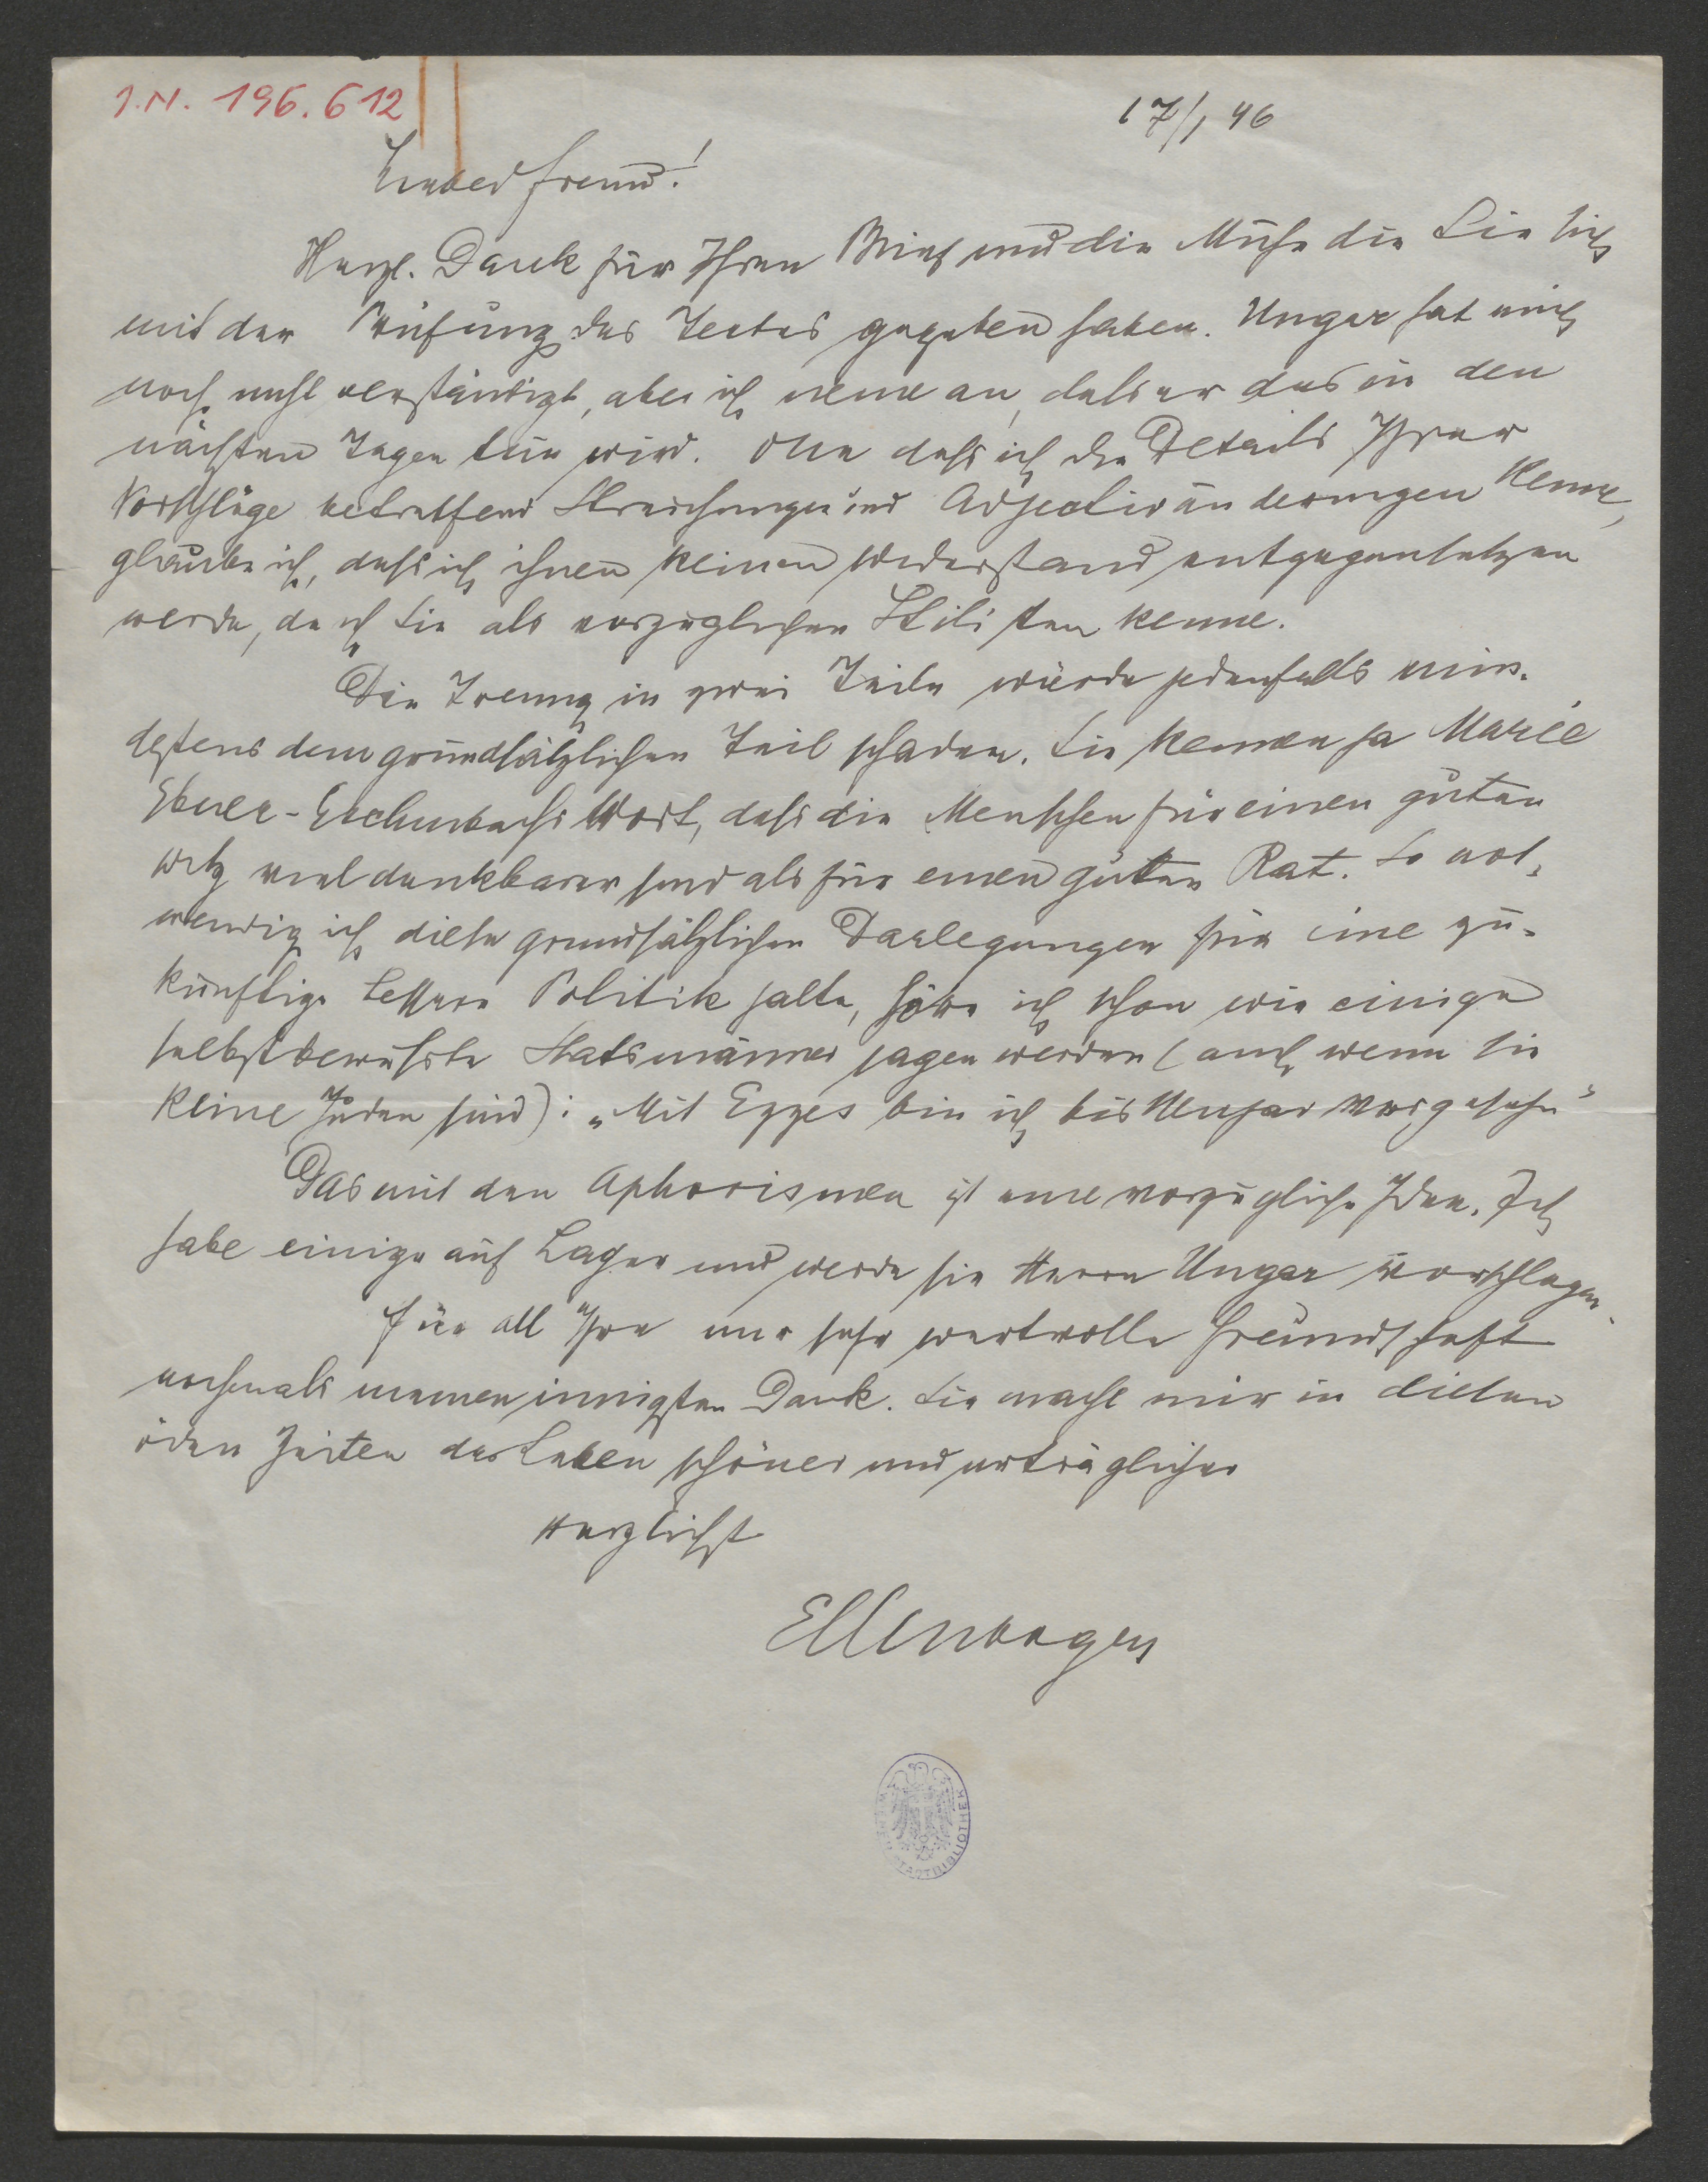 I.N. 196.612
17/1 46
Lieber Freund!
Herzl. Dank für Ihren Brief und die Mühe die Sie sich
mit der Prüfung des Textes gegeben haben. Ungar hat mich
noch nicht verständigt, aber ich neme an, dass er das in den
nächsten Tagen tun wird. One dass ich die Details Ihrer
Vorschläge betreffend Streichungen und Adjectivänderungen kenne,
glaube ich, dass ich ihnen keinen Widerstand entgegensetzen
werde, da ich Sie als vorzüglichen Stilisten kenne.
Die Trenung in zwei Teile würde jedenfalls min-
destens dem grundsätzlichen Teil schaden. Sie kennen ja Marie
Ebner-Eschenbachs Wort, dass die Menschen für einen guten
Witz viel dankbarer sind als für einen guten Rat. So not-
wendig ich diese grundsätzlichen Darlegungen für eine zu-
künftige bessere Politik halte, höre ich schon wie einige
selbstbewusste Statsmänner sagen werden (auch wenn sie
keine Juden sind): „Mit Ezzes bin ich bis Neujar vorgesehn"
Das mit den Aphorismen ist eine vorzügliche Idee. Ich
habe einige auf Lager und werde sie Herrn Ungar vorschlagen.
Für all Ihre mir sehr wertvolle Freundschaft
nochmals meinen innigsten Dank. Sie macht mir in diesen
öden Zeiten das Leben schöner und erträglicher
Herzlichst
Ellenbogen
WIENER STADTBIBLIOTHEK